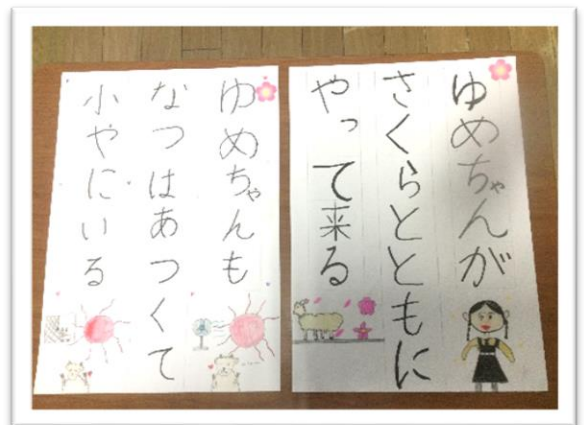 ゆめちゃんが
さくらとともに
やって来る
ゆめちゃんも
なつはあつくて
小やにいる